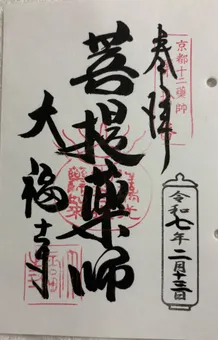 奉拝
京都十二薬師
菩提薬師
大福寺
令和七年二月十三日